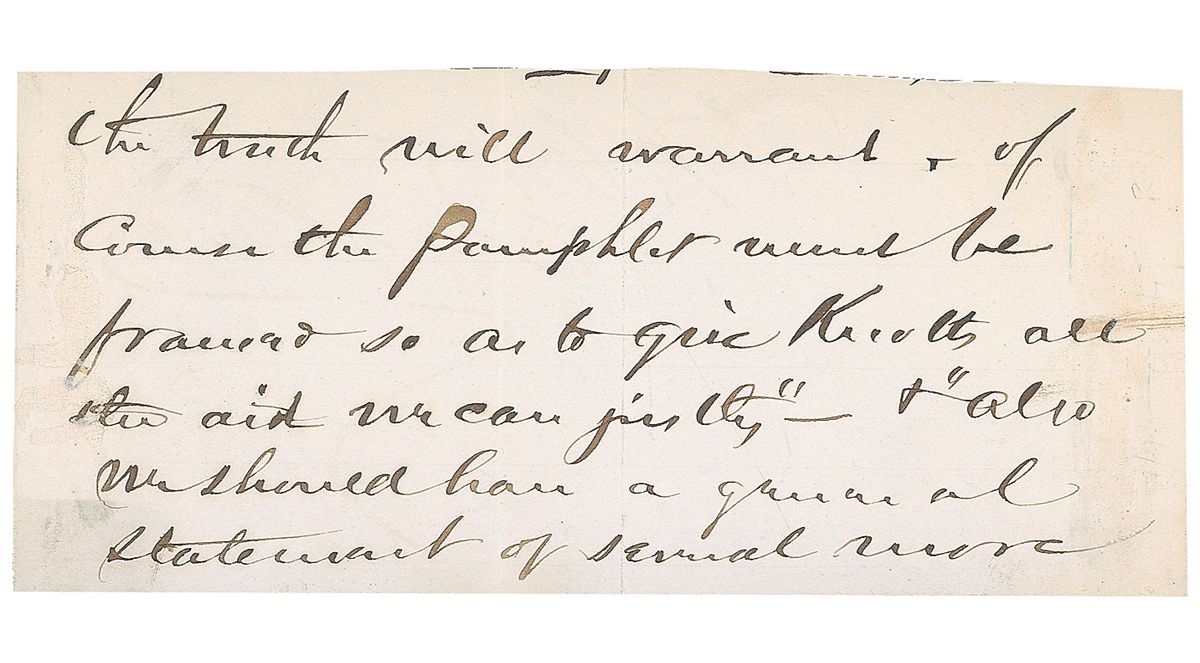 the truth will warrant. of
Course the Pamphlet must be
framed so as to give Knotts all
the aid we can justly" — & "also
We should have a general
statement of several more